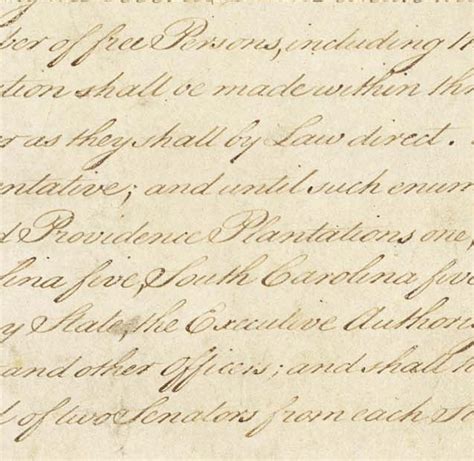 ber of free Persons, including th
tion shall be made within thr
er as they shall by Law direct .
entative; and until such enum
d Providence Plantations one,
lina five, South Carolina five
y State, the Executive Author
and other Officers; and shall h
d of two Senators from each S